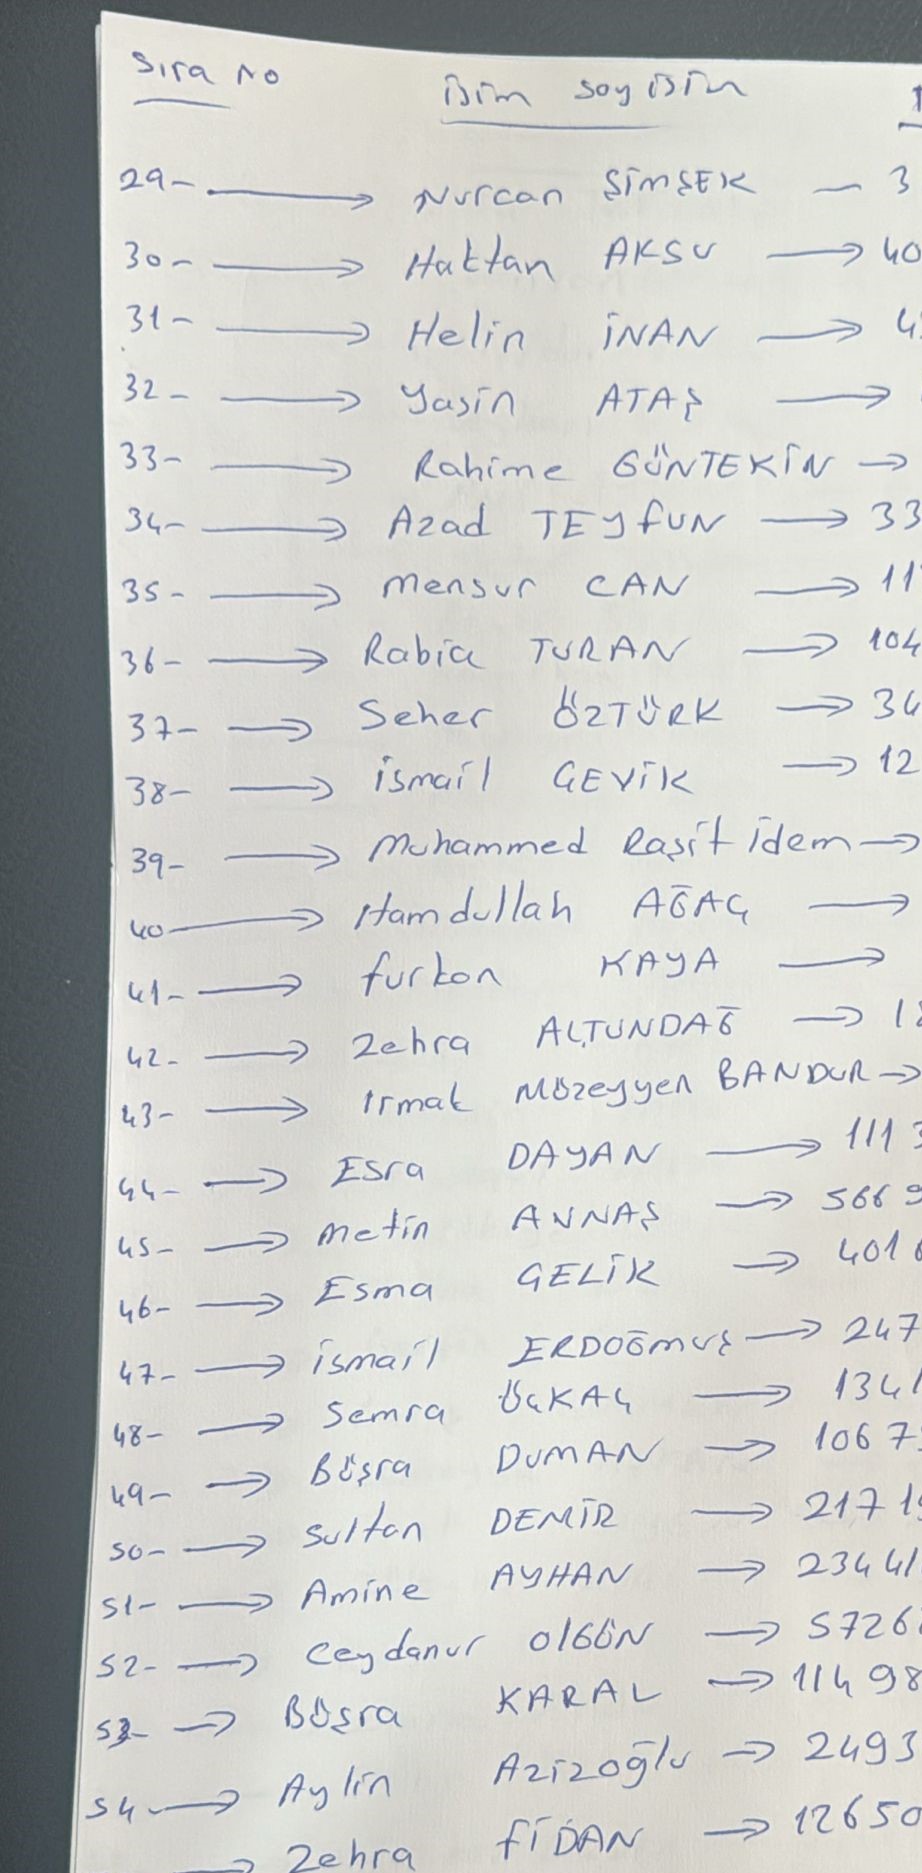 Sıra No isim soy isim
29- → Nurcan ŞİMŞEK - 3
30- → Haktan AKSU → 40
31- → Helin İNAN → 4
32- → Yasin ATAŞ →
33- → Rahime GÜNTEKİN →
34- → Azad TEYfUN → 33
35- → Mensur CAN → 11
36- → Rabia TURAN → 104
37- → Seher ÖZTÜRK → 34
38- → İsmail ÇEVİK → 12
39- → Muhammed Raşit İdem →
40 → Hamdullah AĞAÇ →
41- → furkan KAYA →
42- → Zehra ALTUNDAĞ → 1
43- → Irmak Müzeyyen BANDUR →
44- → Esra DAYAN → 111
45- → Metin AVNAŞ → 566
46- → Esma ÇELİK → 401
47- → İsmail ERDOĞMUŞ → 247
48- → Semra ÜÇKAÇ → 134
49- → Büşra DUMAN → 1067
50- → Sultan DEMİR → 2171
51- → Amine AYHAN → 2344
52- → Ceydanur OlGÜN → 5726
53- → Büşra KARAL → 11498
54 → Aylin Azizoğlu → 2493
→ Zehra fİDAN → 12650